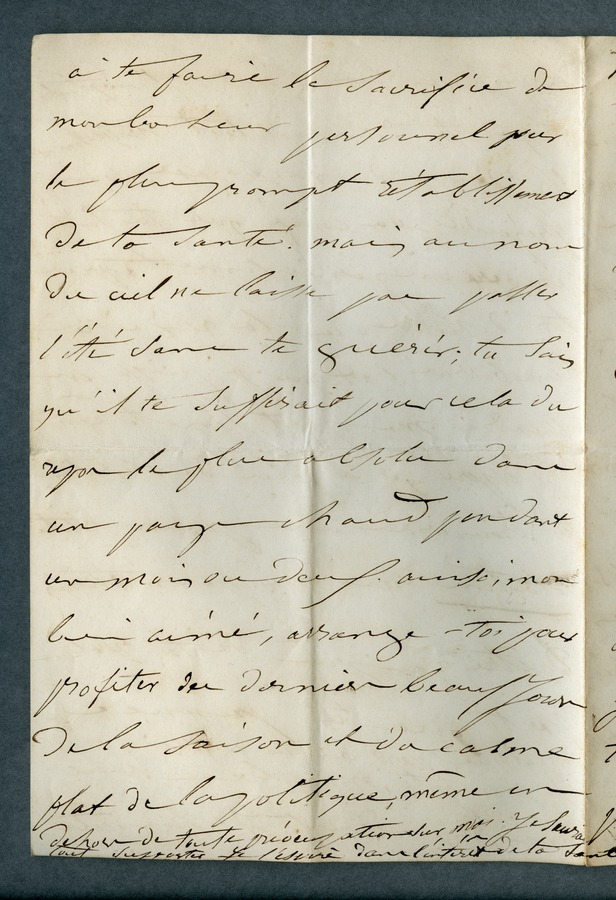 à te faire le sacrifice de
mon bonheur personnel pour
le plus prompt rétablissement
de ta santé. mais au nom
du ciel ne laisse pas passer
l'été sans te guérir; tu sais
qu'il te suffirait pour cela du
repos le plus absolu dans
un pays chaud pendant
un mois ou deux. ainsi, mon
bien aimé, arrange-toi pour
profiter des derniers beaux jours
de la saison et du calme
plat de la politique, même en
dehors de toute préoccupation sur moi. Je saurai
tout supporter je l'espère dans l'intérêt de ta santé